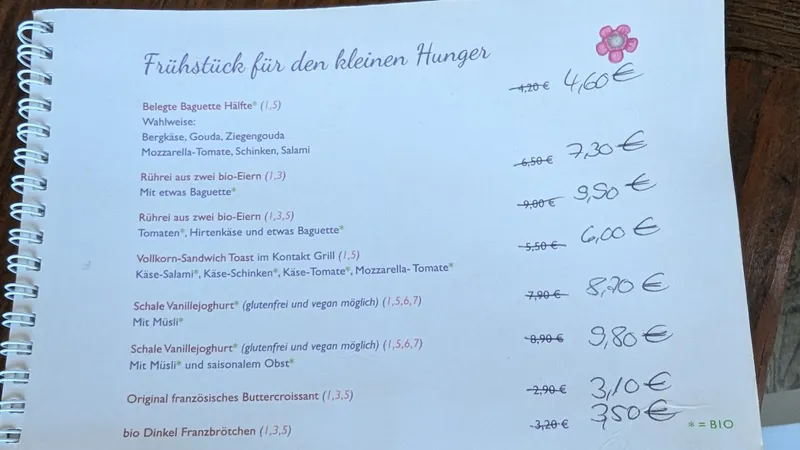 Frühstück für den kleinen Hunger
Belegte Baguette Hälfte* (1,5) 4,20 € 4,60 €
Wahlweise:
Bergkäse, Gouda, Ziegengouda
Mozzarella-Tomate, Schinken, Salami
Rührei aus zwei bio-Eiern (1,3) 6,50 € 7,30 €
Mit etwas Baguette*
Rührei aus zwei bio-Eiern (1,3,5) 9,00 € 9,90 €
Tomaten*, Hirtenkäse und etwas Baguette*
Vollkorn-Sandwich Toast im Kontakt Grill (1,5) 5,50 € 6,00 €
Käse-Salami*, Käse-Schinken*, Käse-Tomate*, Mozzarella- Tomate*
Schale Vanillejoghurt* (glutenfrei und vegan möglich) (1,5,6,7) 7,90 € 8,70 €
Mit Müsli*
Schale Vanillejoghurt* (glutenfrei und vegan möglich) (1,5,6,7) 8,90 € 9,80 €
Mit Müsli* und saisonalem Obst*
Original französisches Buttercroissant (1,3,5) 2,90 € 3,10 €
bio Dinkel Franzbrötchen (1,3,5) 3,20 € 3,50 €
* = BIO